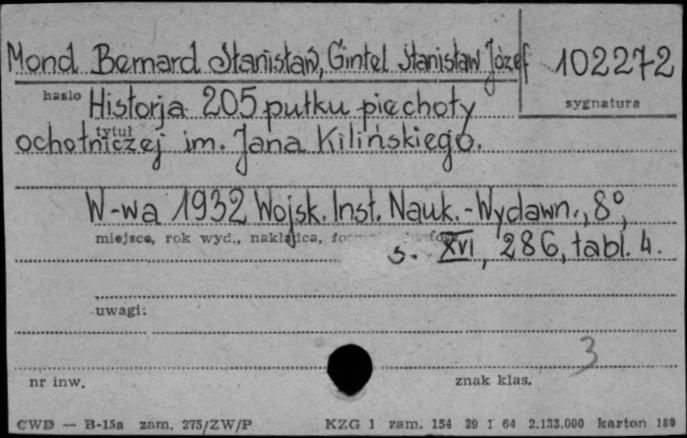 Mond Bernard Stanisław, Gintel Stanisław Józef 102272
hasło Historja 205 pułku piechoty sygnatura
tytuł
ochotniczej im. Jana Kilińskiego.
W-wa 1932 Wojsk. Inst. Nauk.-Wydawn., 8°,
miejsce, rok wyd., nakładca,
s. XVI, 286, tabl. 4.
uwagi:
3
nr inw. znak klas.
CWD — B-15a zam. 275/ZW/P KZG 1 zam. 154 29 I 64 2.133.000 karton 180